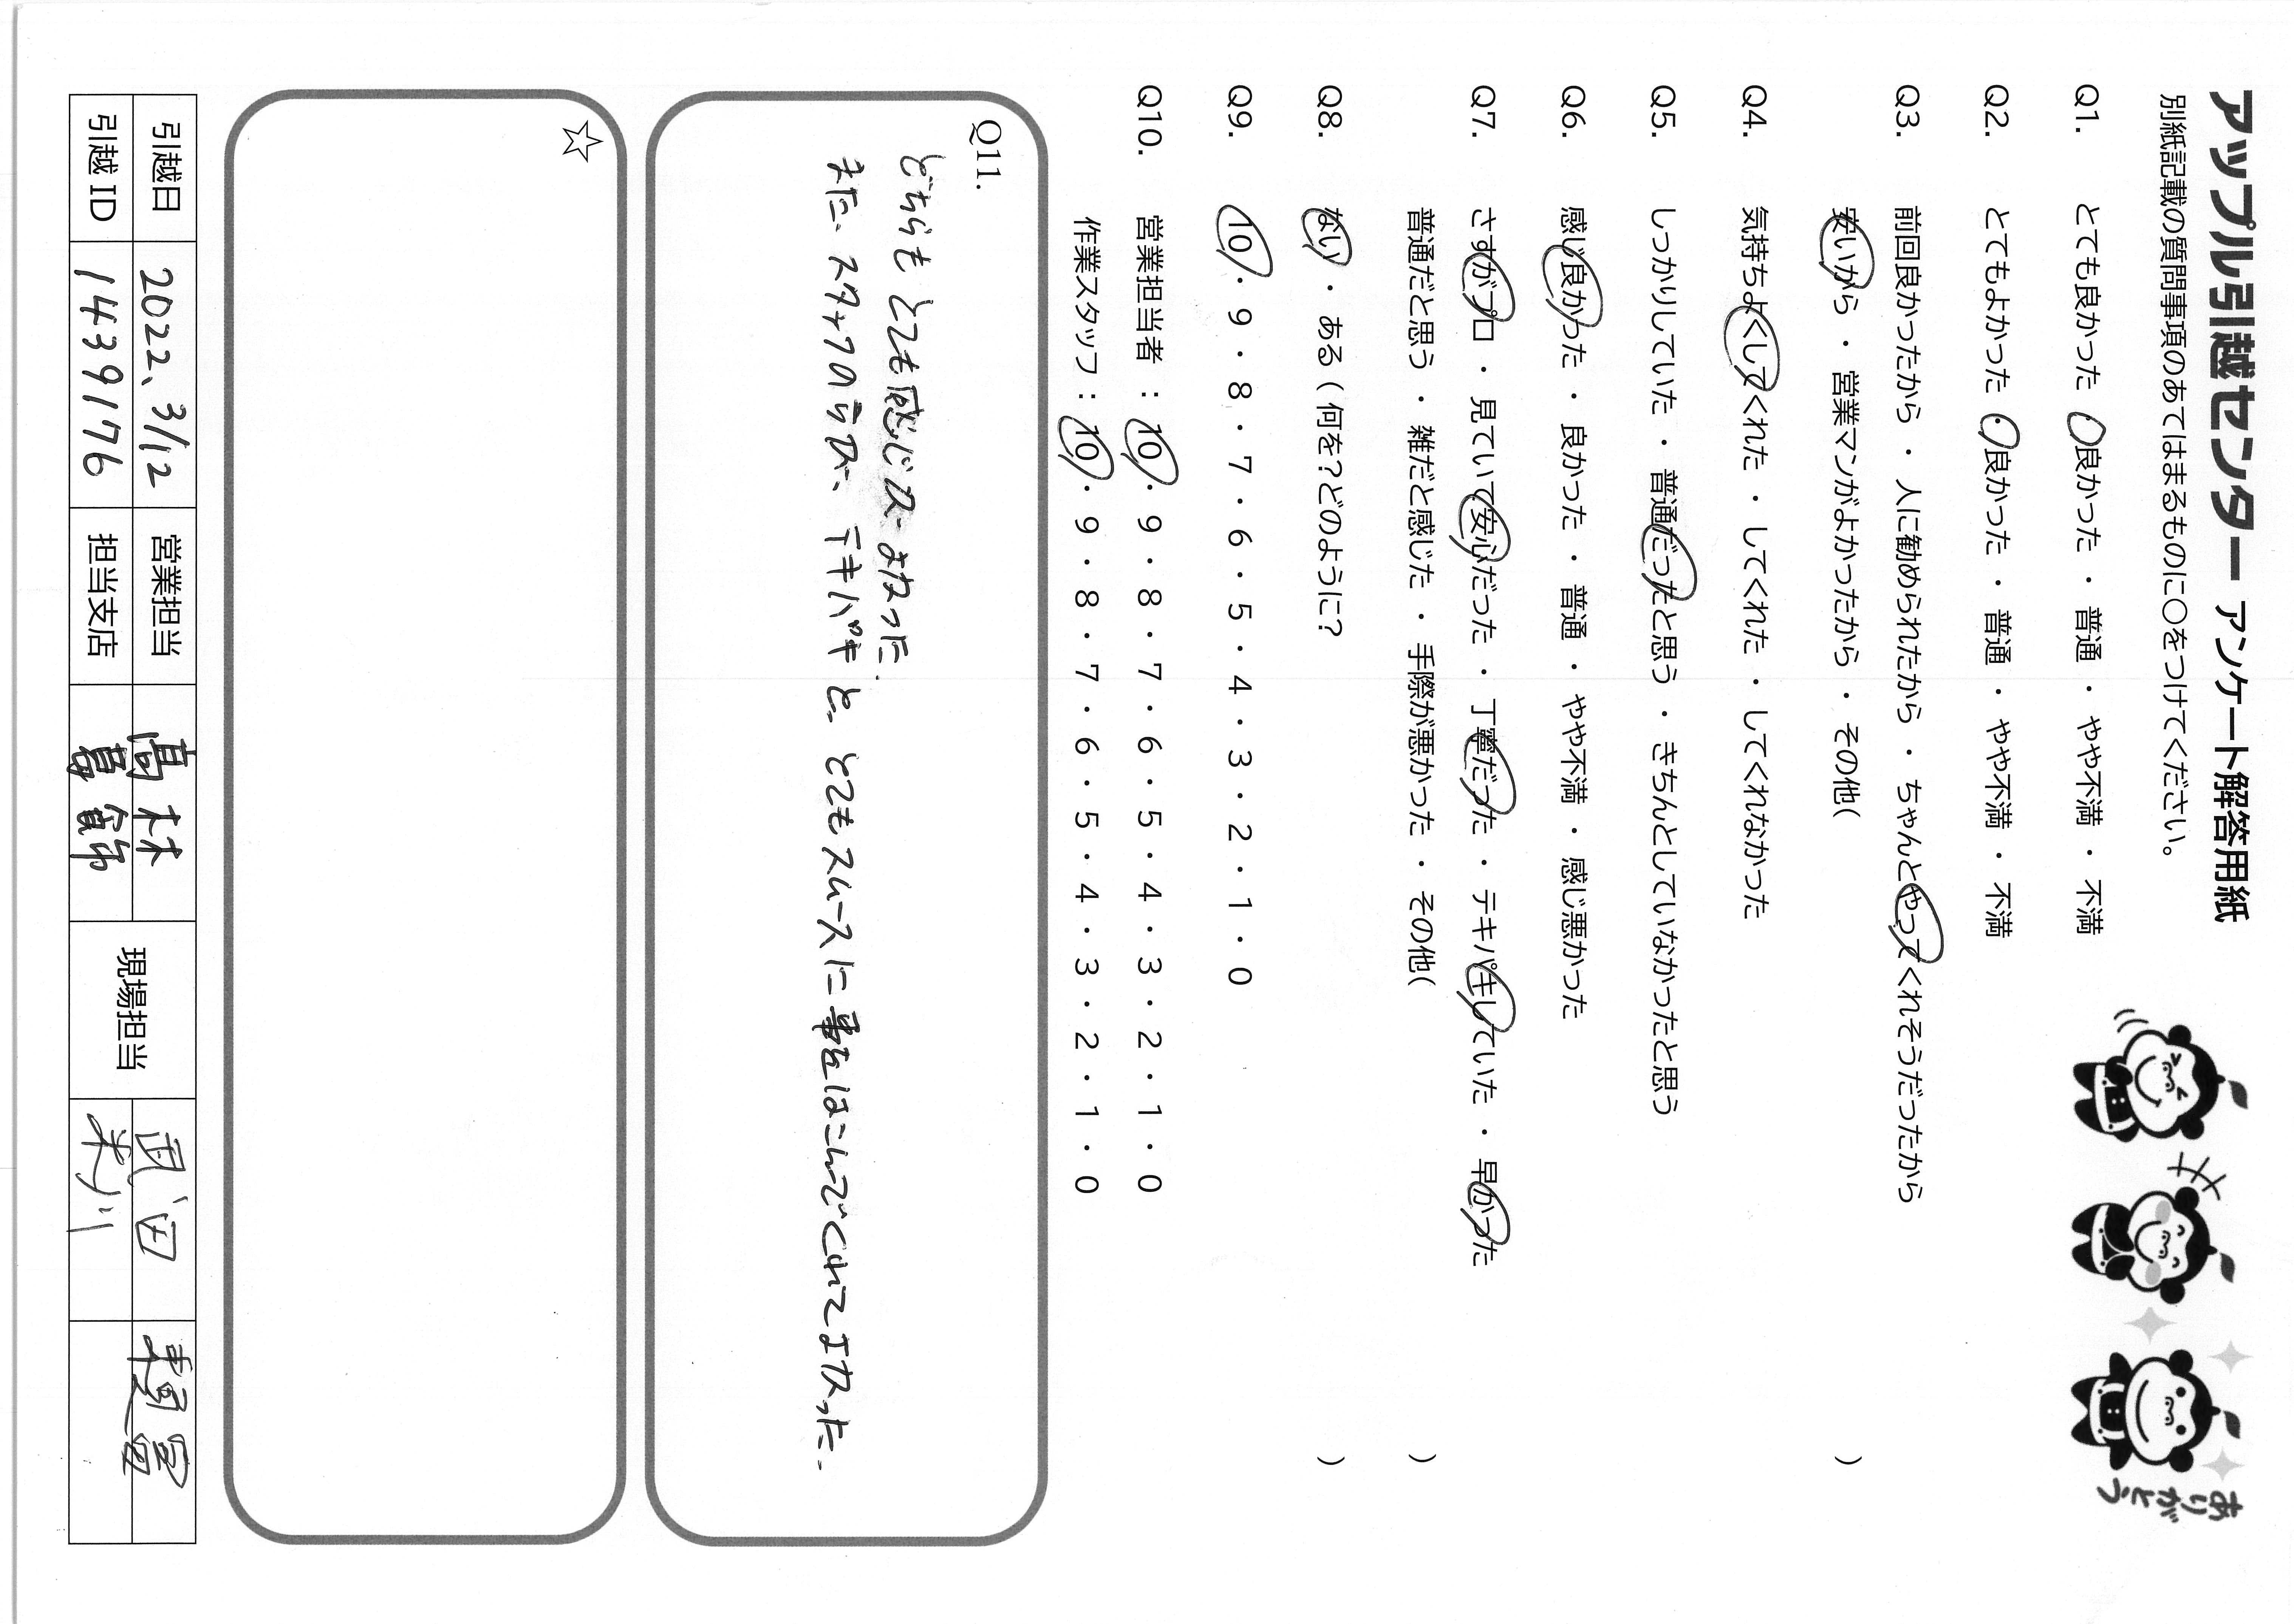 アップル引越センター アンケート解答用紙
別紙記載の質問事項のあてはまるものに○をつけてください。
Q1. とても良かった ・ 良かった ・ 普通 ・ やや不満 ・ 不満
Q2. とてもよかった ・ 良かった ・ 普通 ・ やや不満 ・ 不満
Q3. 前回良かったから ・ 人に勧められたから ・ ちゃんとやってくれそうだったから
安いから ・ 営業マンがよかったから ・ その他( )
Q4. 気持ちよくしてくれた ・ してくれた ・ してくれなかった
Q5. しっかりしていた ・ 普通だったと思う ・ きちんとしていなかったと思う
Q6. 感じ良かった ・ 良かった ・ 普通 ・ やや不満 ・ 感じ悪かった
Q7. さすがプロ ・ 見ていて安心だった ・ 丁寧だった ・ テキパキしていた ・ 早かった
普通だと思う ・ 雑だと感じた ・ 手際が悪かった ・ その他( )
Q8. ない ・ ある(何を?どのように? )
Q9. 10・9・8・7・6・5・4・3・2・1・0
Q10. 営業担当者 : 10・9・8・7・6・5・4・3・2・1・0
作業スタッフ : 10・9・8・7・6・5・4・3・2・1・0
ありがとう
Q11.
どちらもとても感じがよかった.
また、スタッフのうごき、テキパキと、とてもスムーズに はこんでくれてよかった.
☆
引越日 2022、3/12 営業担当 高林 現場担当
引越ID 1439176 担当支店 米川